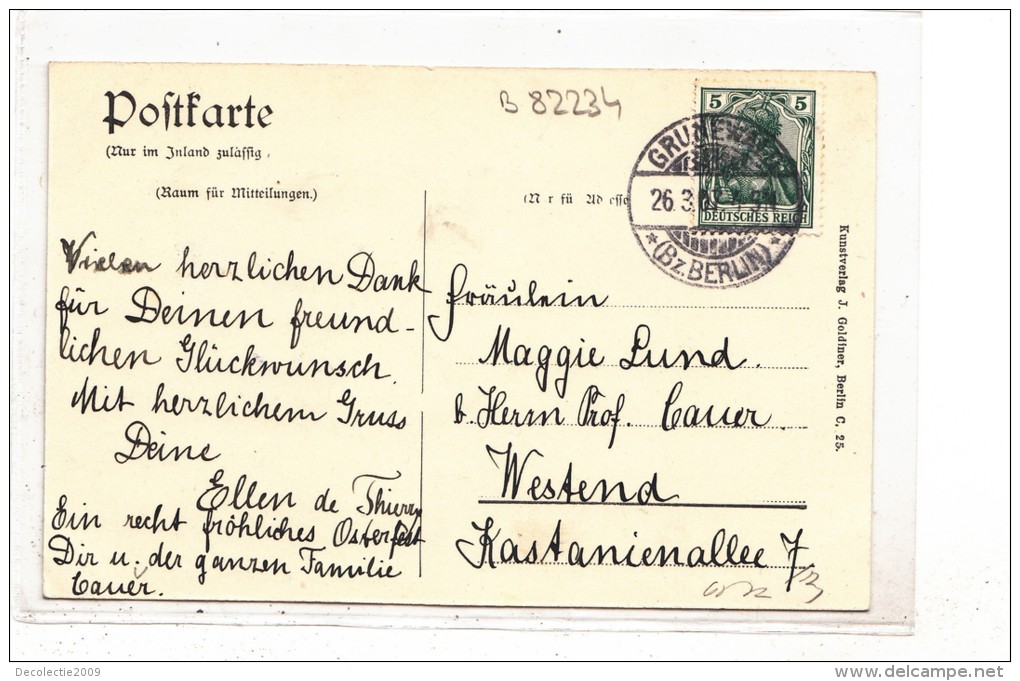 B 82234
Postkarte
(Nur im Inland zulässig
(Raum für Mitteilungen.)
5 5
DEUTSCHES REICH
GRUNEWALD
26.3.
(Bz. BERLIN)
Vielen herzlichen Dank
für Deinen freund-
lichen Glückwunsch.
Mit herzlichem Gruss
Deine
Ellen de Thierry
Ein recht fröhliches Osterfest
Dir u. der ganzen Familie
Cauer.
Fräulein
Maggie Lund
b. Herrn Prof. Cauer.
Westend
Kastanienallee 7
Kunstverlag J. Goldiner, Berlin C, 25.
Decolectie2009
www.delcampe.net